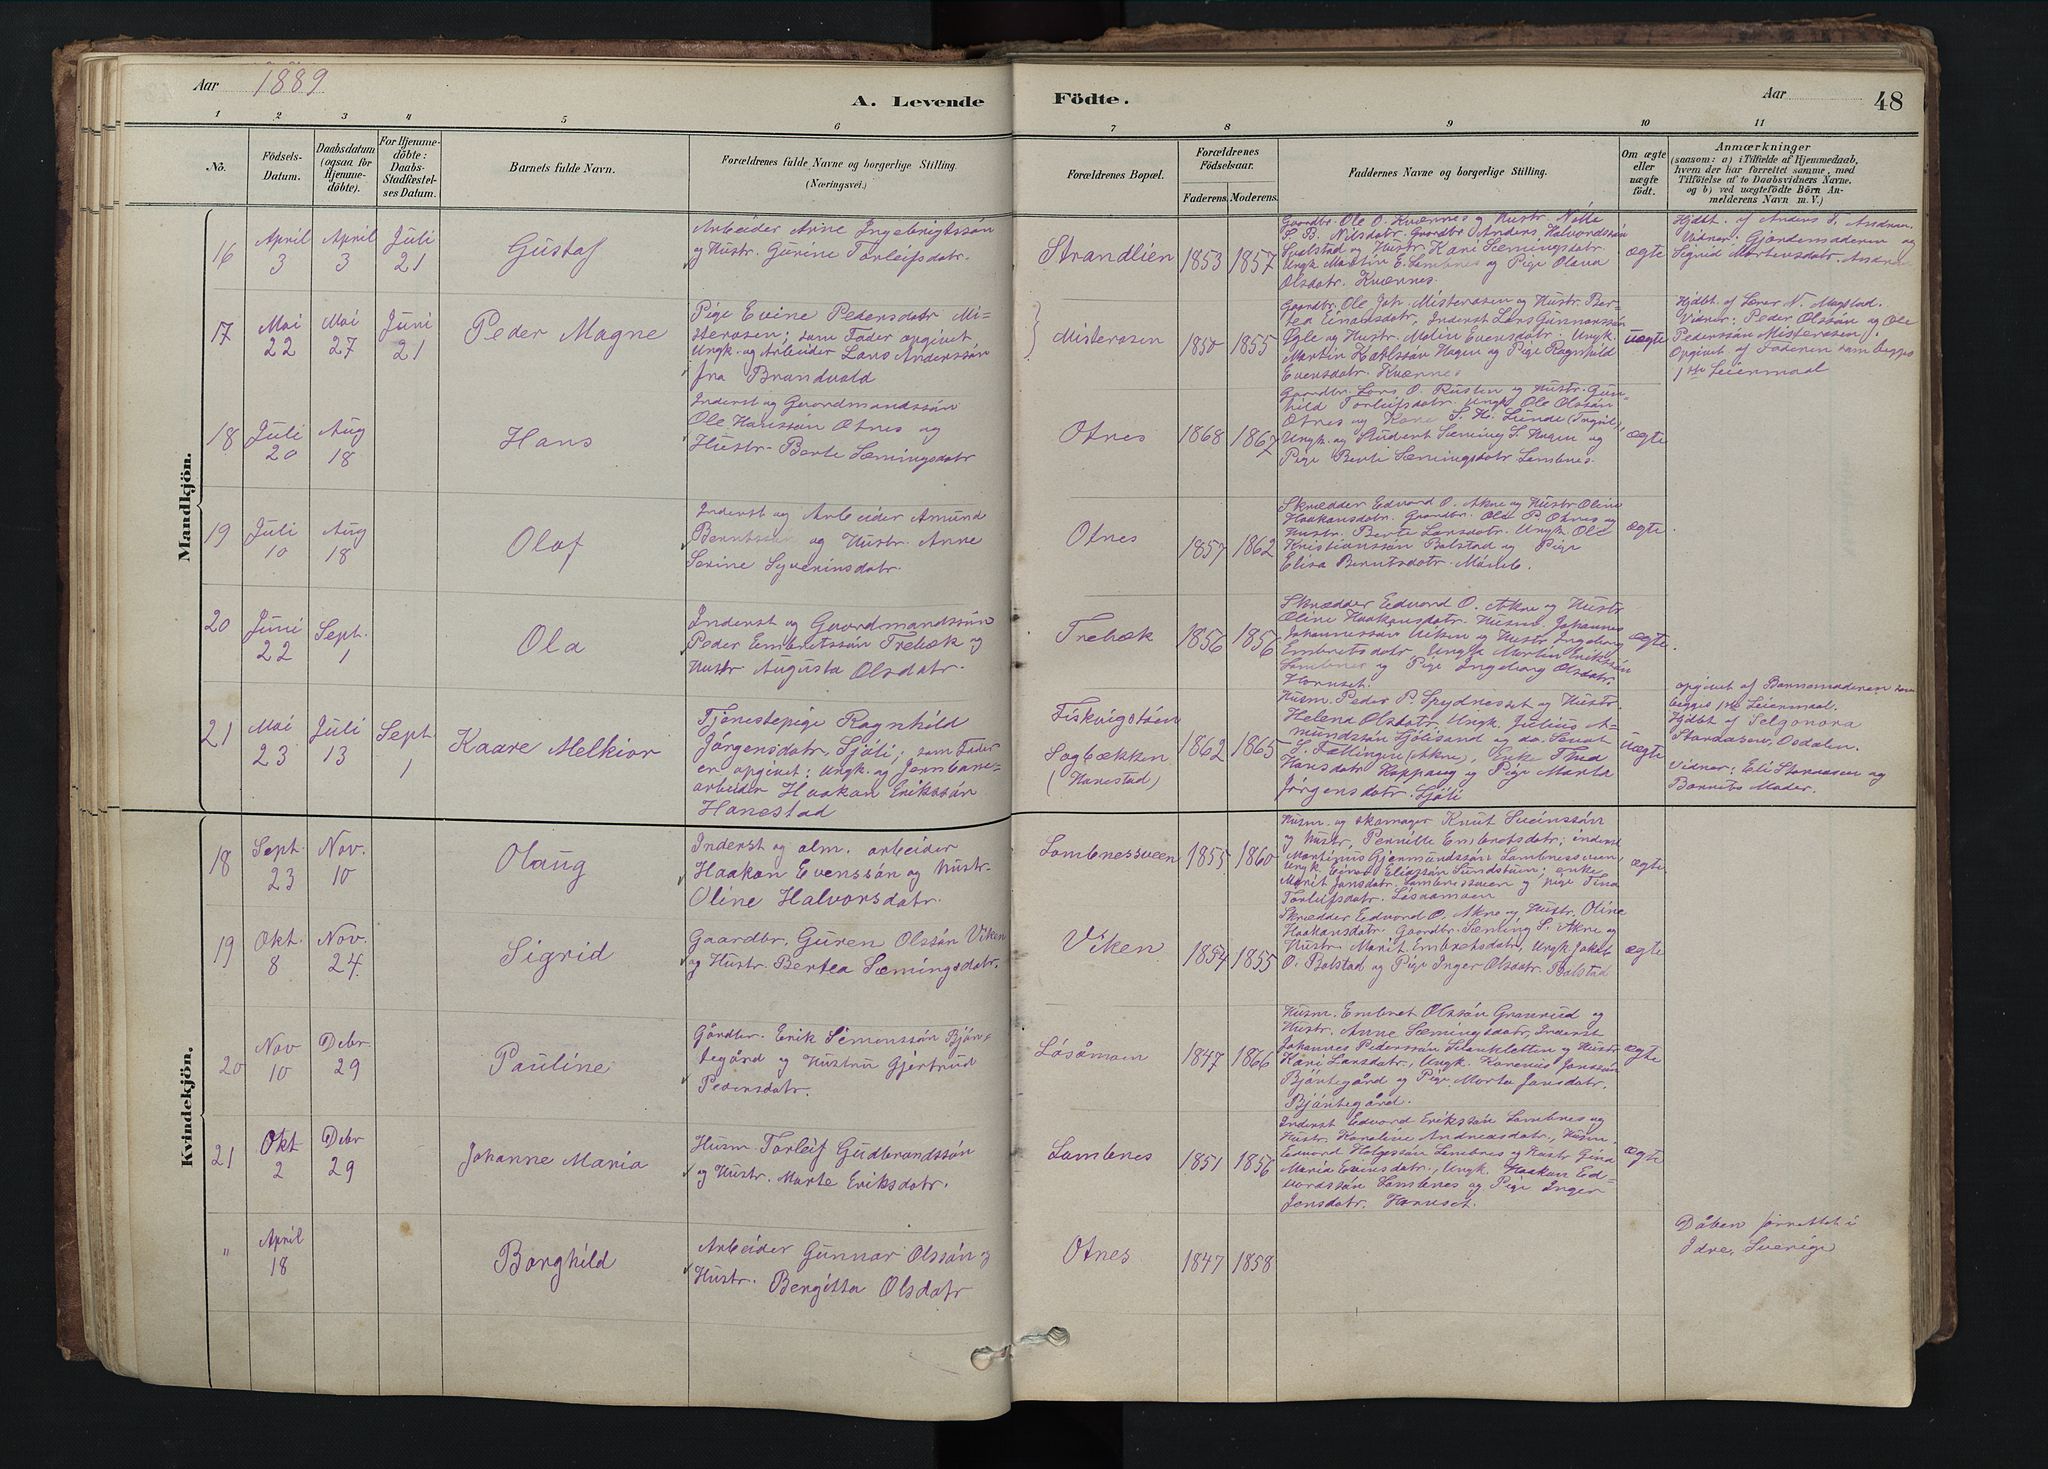 Aar 1889
A. Levende Födte.
Aar
48
1 2 3 4 5 6 7 8 9 10 11
No.
Födsels-
Datum.
Daabsdatum
(ogsaa for
Hjemme-
döbte).
For Hjemme-
döbte:
Daabs-
Stadfæstel-
ses Datum.
Barnets fulde Navn.
Forældrenes fulde Navne og borgerlige Stilling.
(Næringsvei.)
Forældrenes Bopæl.
Forældrenes
Födselsaar.
Faderens. Moderens.
Faddernes Navne og borgerlige Stilling.
Om ægte
eller
uægte
födt.
Anmærkninger
(saasom: a) i Tilfælde af Hjemmedaab,
hvem der har forrettet samme, med
Tilföielse af to Daabsvidners Navne,
og b) ved uægtefödte Börn An-
melderens Navn m. V.)
Mandkjön.
16
April
3
April
3
Juli
21
Gustaf
Arbeider Arne Ingebrigtssön
og Hustr. Gurine Torleifsdatr.
Strandlien
1853 1857
Gaardbr. Ole O. Kværnes og Hustr. Nille
S. B. Nilsdatr. Gaardbr Anders Halvordssön
Sralstad og Hustr. Kari Sæmingsdatr.
Ungk. Martin E. Lombnes og Pige Olava
Olsdatr. Kværnes.
ægte
Hjdbt. af Anders
Vidner: Gjordemoderen og
Sigrid Mortensdatr.
17
Mai
22
Mai
27
Juni
21
Peder Magne
Pige Evine Pedersdatr Mi-
sterosen; som Fader opgivet,
Ungk. og Arbeider Lars Anderssön
fra Brandvold
Misterosen
1850 1855
Gaardbr. Ole Joh. Misterosen og Hustr. Ber-
tea Einarsdatr, Inderst Lars Gunnarssön
Øgle og Hustr. Malin Evensdatr. Ungk.
Martin Karlssön Hagen og Pige Ragnhild
Evensdatr. Kværnes
uægte
Hjdbt. af Lærer N. Magstad.
Vidner: Peder Olssön og Ole
Pederssön Misterosen.
Opgivet af Faderen som begges
1ste Leiermaal
18
Juli
20
Aug
18
Hans
Inderst og Gaardmandssön
Ole Hanssön Otnes og
Hustr. Berte Sæmingsdatr
Otnes
1868 1867
Gaardbr. Lars O. Rusten og Hustr. Gun-
hild Torleifsdatr. Ungk Ole Olssön
Otnes og Kone S. H. Lunde
Ungk. og Student Sæming S. Hagen og
Pige Berte Sæmingsdatr. Lombnes.
ægte
19
Juli
10
Aug
18
Olaf
Inderst og Arbeider Amund
Berntssön og Hustr. Anne
Serine Syverinsdatr.
Otnes
1857 1862
Skrædder Edvard O. Akre og Hustr Oline
Haakansdatr. Gaardbr. Ole P. Otnes og
Hustr. Berte Larsdatr. Ungk. Ole
Kristianssön Bolstad og Pige
Elisa Berntsdatr.
ægte.
20
Juni
22
Sept.
1
Ola
Inderst og Gaardmandssön
Peder Embretssön Trebæk og
Hustr. Augusta Olsdatr.
Trebæk
1856 1856
Skrædder Edvard O. Akre og Hustr
Oline Haakansdatr. Husm. Johannes
Johannessön Viken og Hustr. Ingeborg
Embretsdatr, Ungk Martin Erikssön
Lombnes og Pige Ingeborg Olsdatr.
Hornset.
ægte.
21
Mai
23
Juli
13
Sept.
1
Kaare Melkior
Tjenestepige Ragnhild
Jörgensdatr. Sjöli; som Fader
er opgivet: Ungk. og Jernbane-
arbeider Haakan Erikssön
Hanestad
Fiskvigstöen
Sagbækken
(Hanestad)
1862 1865
Husm. Peder P. Spydnesset og Hustr
Helena Olsdatr. Ungk. Julius A-
mundssön Sjölisand og do.
Hansdatr Koppang og Pige Marta
Jörgensdatr. Sjöli
uægte
opgivet af Barnemoderen som
begges 1ste Leiermaal.
Hjdbt af Selgonora
Storaasen, Osdalen.
Vidner: Eli Storaasen og
Barnets Moder.
Kvindekjön.
18
Sept.
23
Nov.
10
Olaug
Inderst og alm. arbeider
Haakan Evenssön og Hustr.
Oline Halvorsdatr.
Lombnessveen
1855 1860
Husm. og skomager Knut Sveinssön
og Hustr, Pernille Embretsdatr; inderst
Martinus Gjermundssön Lombnessveen,
Ungk. Einar Eliassön Sundstuen; enke
Marit Jonsdatr. Lombnessveen og pige Tina
Torleifsdatr. Lösaamoen
ægte
19
Okt.
8
Nov.
24
Sigrid
Gaardbr. Guren Olssön Viken
og Hustr. Bertea Sæmingsdatr.
Viken
1854 1855
Skrædder Edvard O. Akre og Hustr. Oline
Haakansdatr. Gaardbr. Sæming S. Akre og
Hustr. Marit Embretsdatr, Ungk. Jakob
O. Bolstad og Pige Inger Olsdatr. Bolstad
ægte
20
Nov
10
Debr
29
Pauline
Gårdbr. Erik Simenssön Bjön-
tegård og Hustru Gjertrud
Pedersdatr.
Lösåmoen
1847 1866
Husm. Embret Olssön Granrud og
Hustr. Anne Sæmingsdatr, Inderst
Johannes Pederssön og Hustr
Kari Larsdatr., Ungk. Karenus Jonssön
Bjöntegård og Pige Marta Jonsdatr.
Bjöntegård.
ægte
21
Okt
2
Debr
29
Johanne Maria
Husm Torleif Gudbrandssön
og Hustr. Marte Eriksdatr.
Lombnes
1851 1856
Inderst Edvard Erikssön Lombnes og
Hustr. Karoline Andreasdatr., Husm.
Edvard Holgessön Lombnes og Hustr Gina
Marie Evensdatr., Ungk. Haakan Ed-
vardssön Lombnes og Pige Inger
Jonsdatr. Hornset.
ægte
"
April
18
Borghild
Arbeider Gunnar Olssön og
Hustr. Bergitta Olsdatr
Otnes
1847 1858
Dåben forrettet i
Idre, Sverige